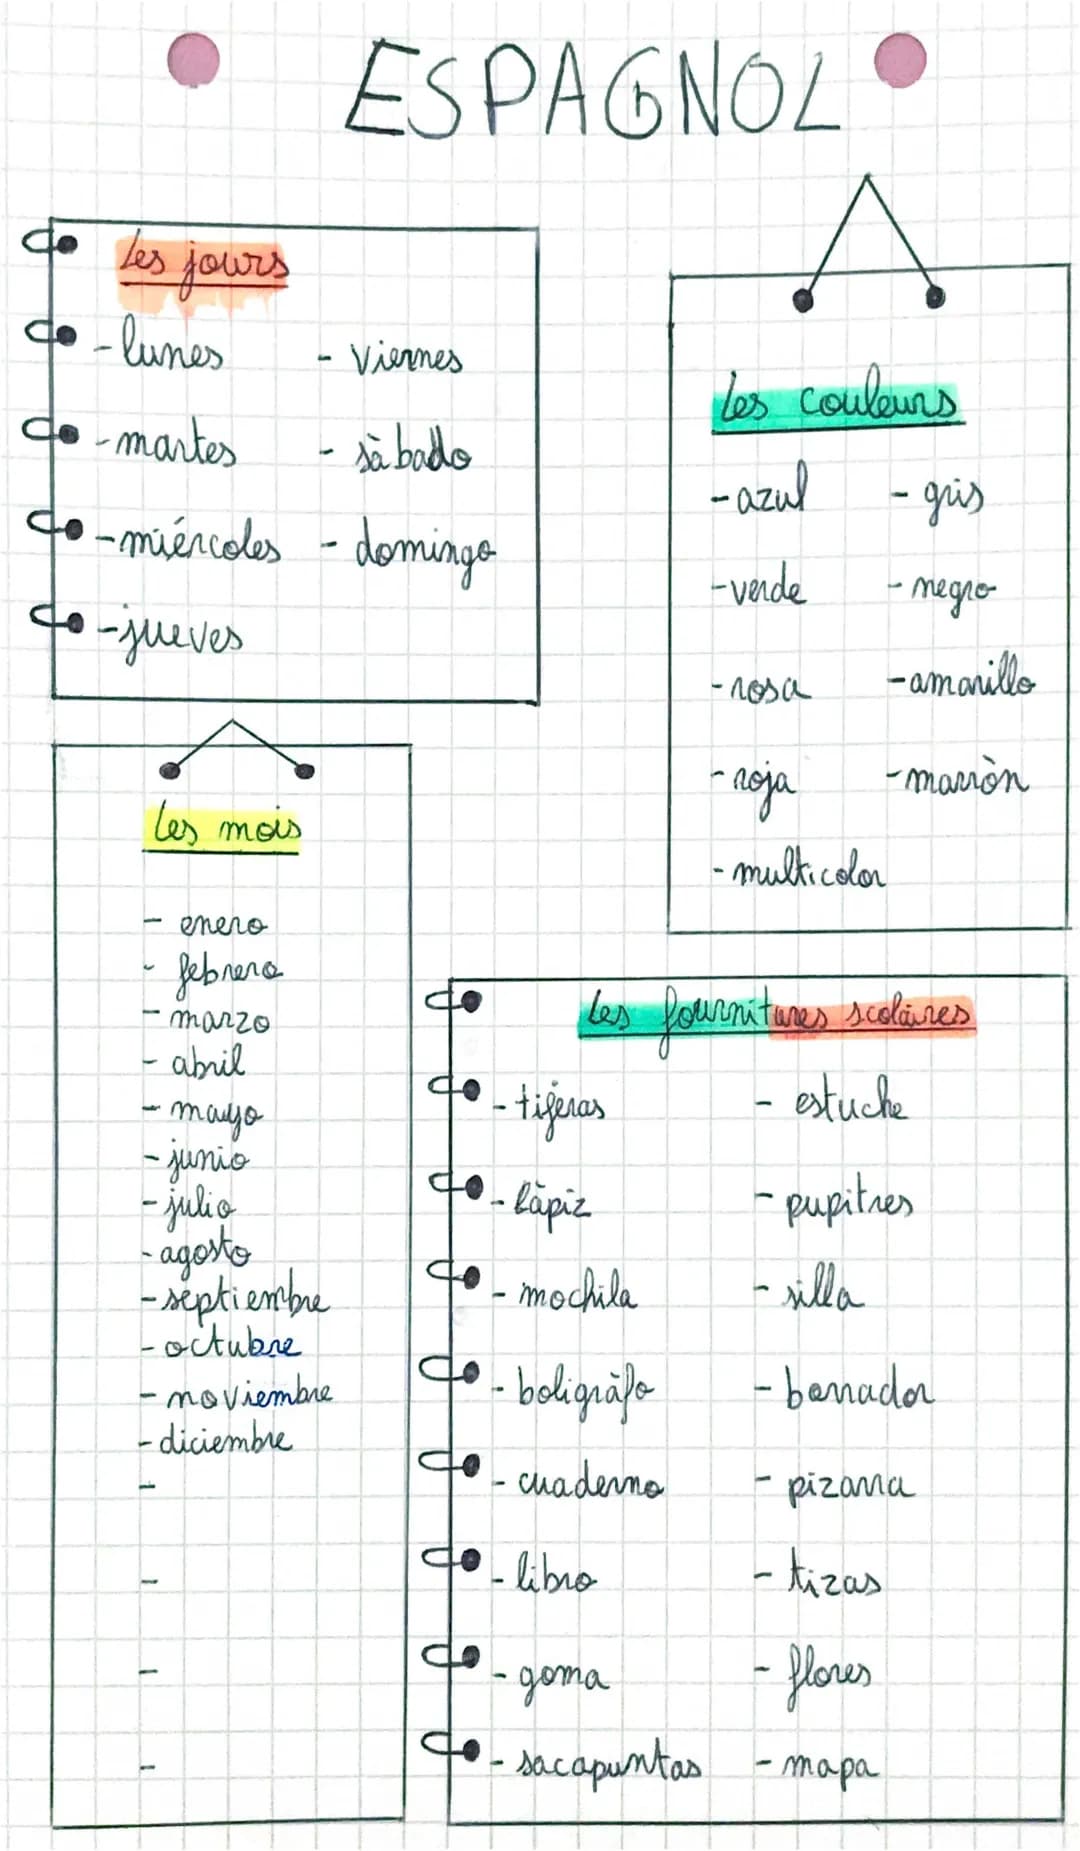 ESPAGNOL
Les jours
- lunes
- martes
- miércoles
- jueves
- viernes
- sàbado
- domingo
Les couleurs
- azul
- verde
- rosa
- roja
- multicolor
- gris
- negro
- amarillo
- marròn
Les mois
- enero
- febrero
- marzo
- abril
- mayo
- junio
- julio
- agosto
- septiembre
- octubre
- noviembre
- diciembre
-
-
-
-
Les fournitures scolaires
- tijeras
- làpiz
- mochila
- boligràfo
- cuaderno
- libro
- goma
- sacapuntas
- estuche
- pupitres
- silla
- borrador
- pizarra
- tizas
- flores
- mapa